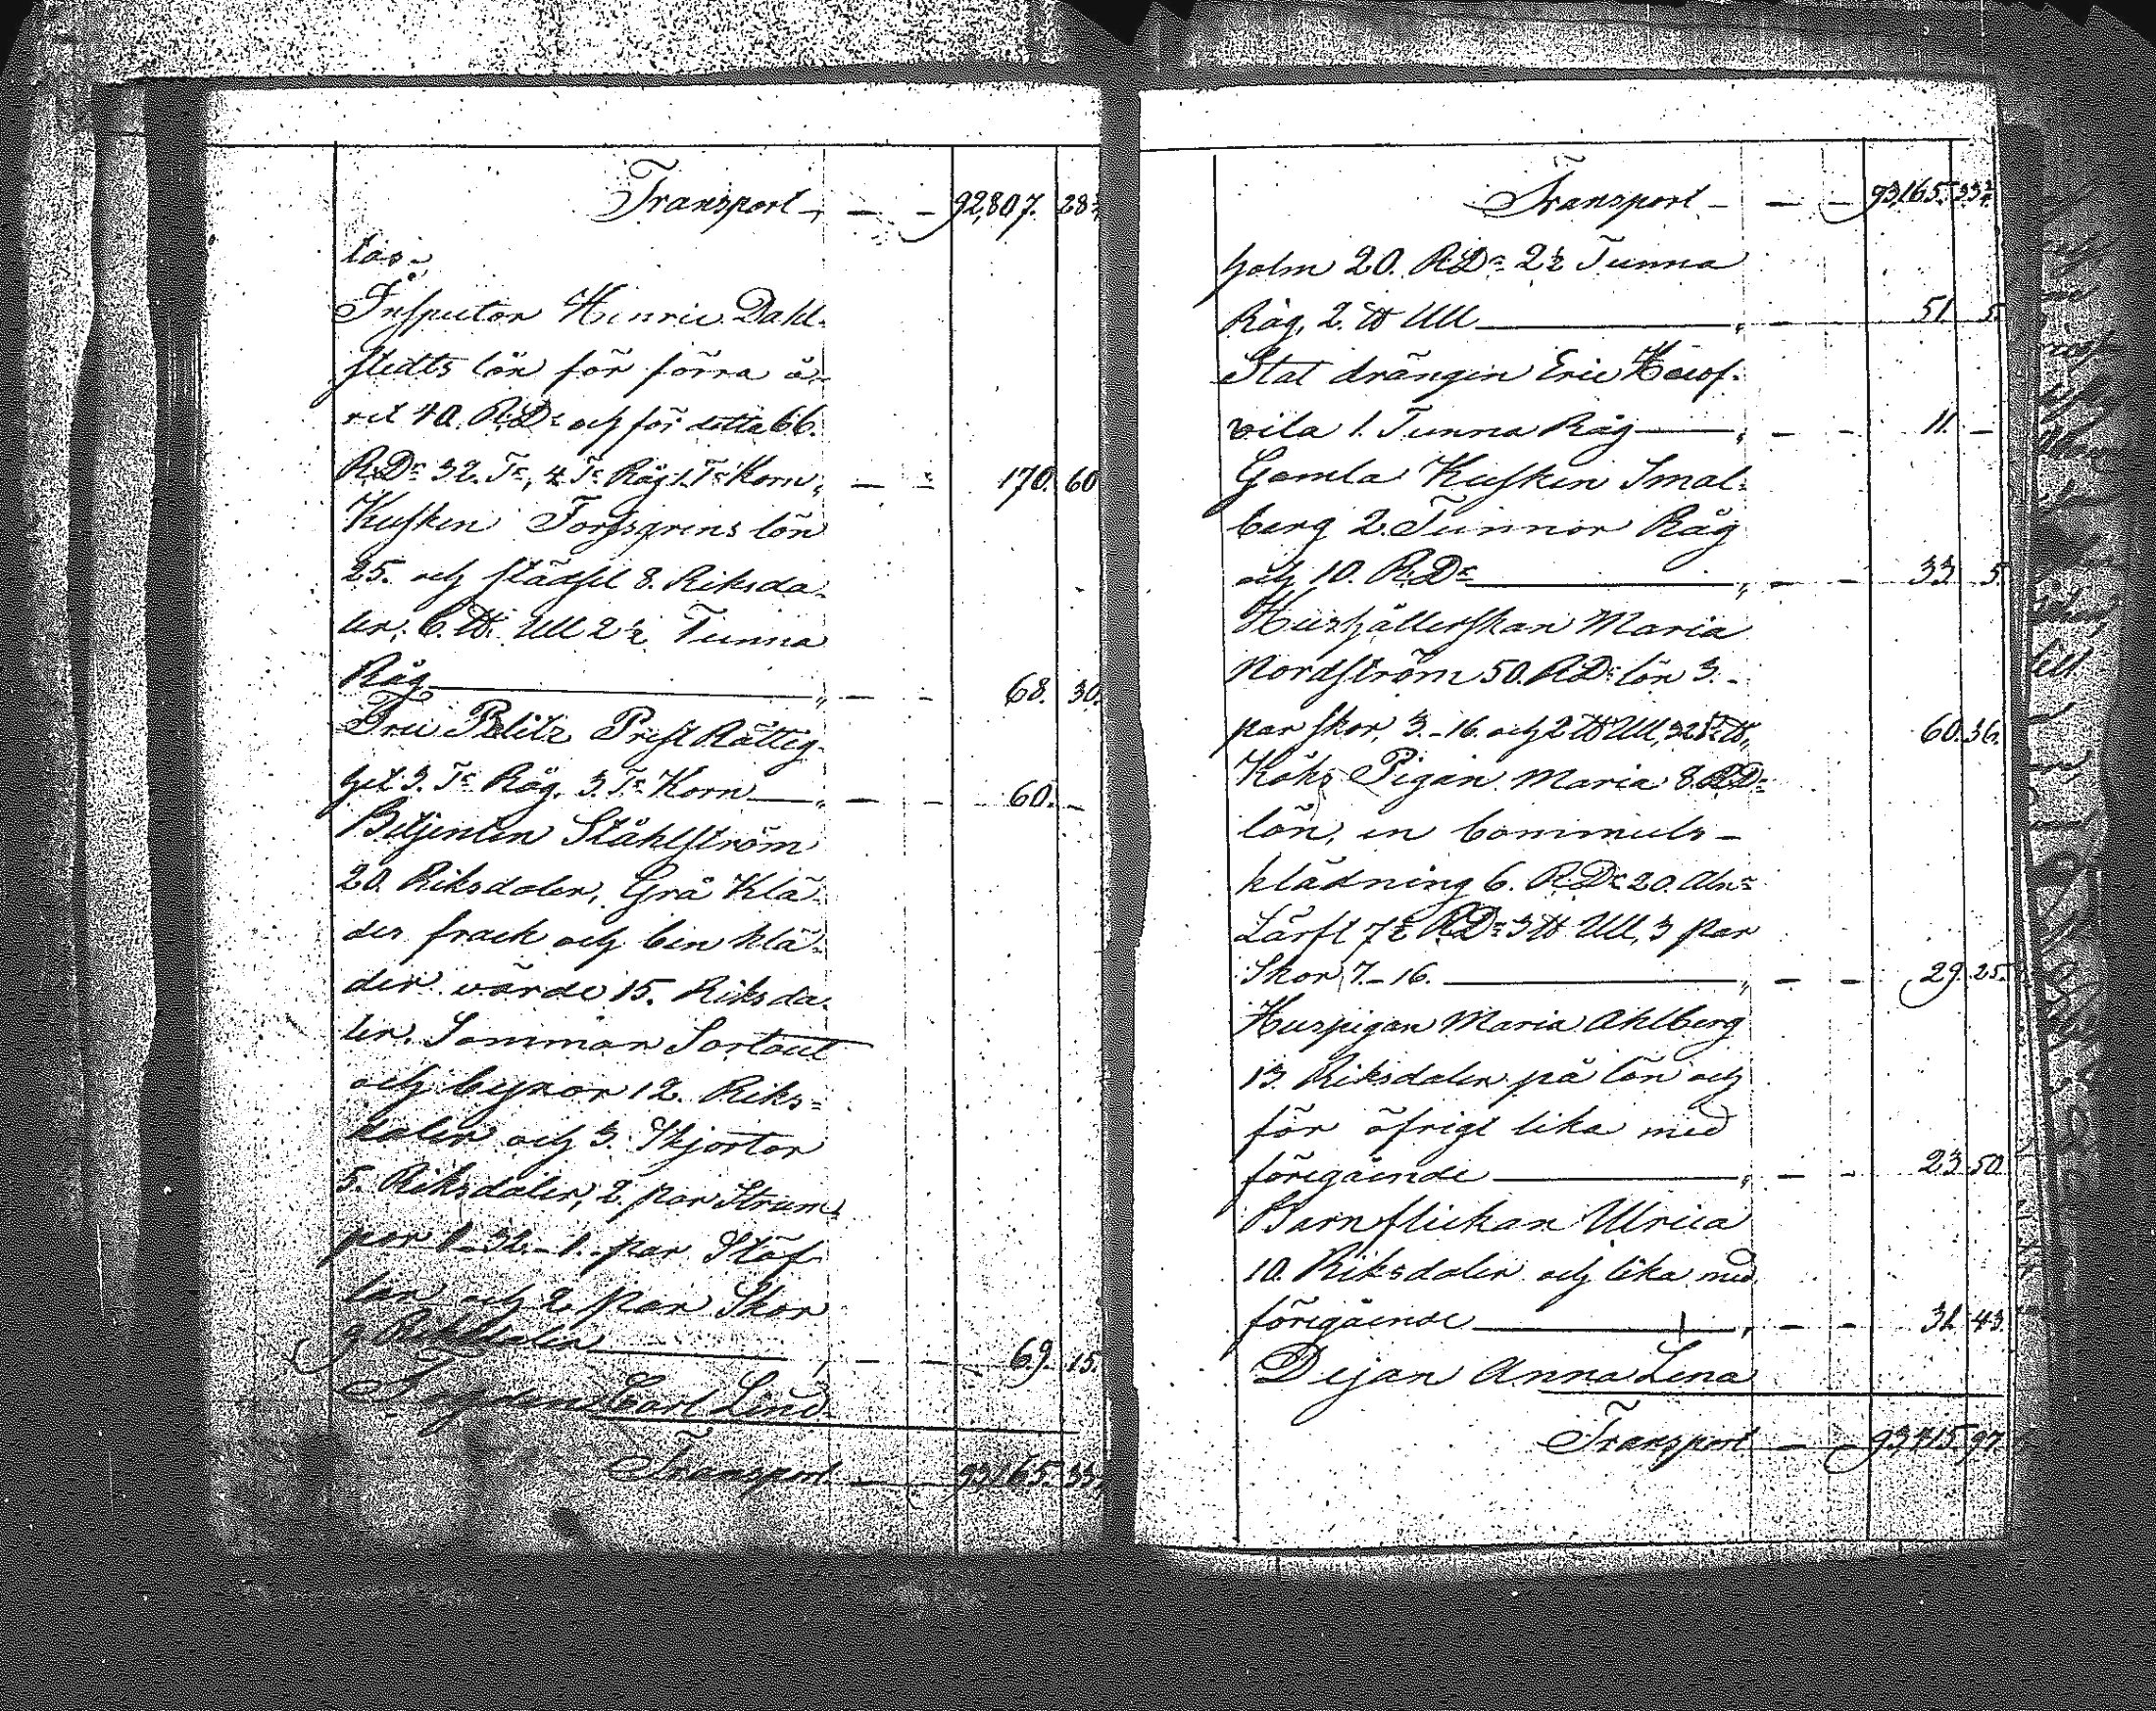 Transport - - - 92,807. 28
tas.
Inspector Henric Dahl-
stedts lön för förra å-
ret 40. RDr och för detta 66.
RDr 32. Tr, 4 Tr Råg 1. Tr Korn, - - 170. 60
Kusken Forssgrens lön
25. och städsel 8. Riksda-
ler, 6. ℔. Ull 2½ Tunna
Råg - - 68. 30.
Fru Pelitz Prest Rättig-
het 3. Tr Råg. 3. Tr Korn - - 60. -
Betjenten Ståhlström
20. Riksdaler, Grå Klä-
der frack och ben klä-
der värde 15. Riksda-
ler. Sommar Sortout
och byxor 12. Riks-
daler och 3. Skjortor
5. Riksdaler, 2. par Strum-
por 1-32.- 1. par Stöf-
lar och 2. par Skor
9 Riksdaler - - 69. 15.
Fogden Carl Lind-
Transport - 93,165. 33
Transport - - - 93,165. 33¾
holm 20. RDr 2½ Tunna
Råg, 2. ℔ Ull - 51. 5.
Stat drängen Eric
vila 1. Tunna Råg - - 11. -
Gamla Kusken Smal-
berg 2. Tunnor Råg
och 10. RDr - - 33. 5
Hushållerskan Maria
Nordström 50. RDr lön 3.
par skor, 3.-16. och 2 ℔ Ull, 60. 36.
Köks Pigan Maria 8. RDr
lön, en bommuls-
klädning 6. RDr 20. Alnr
Lärft 7½ RDr 3 ℔ Ull, 3 par
Skor 7-16. - - 29. 25.
Huspigan Maria Ahlberg
13. Riksdaler på lön och
för öfrigt lika med
föregående - - 23 50
Barnflickan Ulrica
10. Riksdaler och lika med
föregående - - 31. 43.
Dejan Anna Lena
Transport - 93415 97